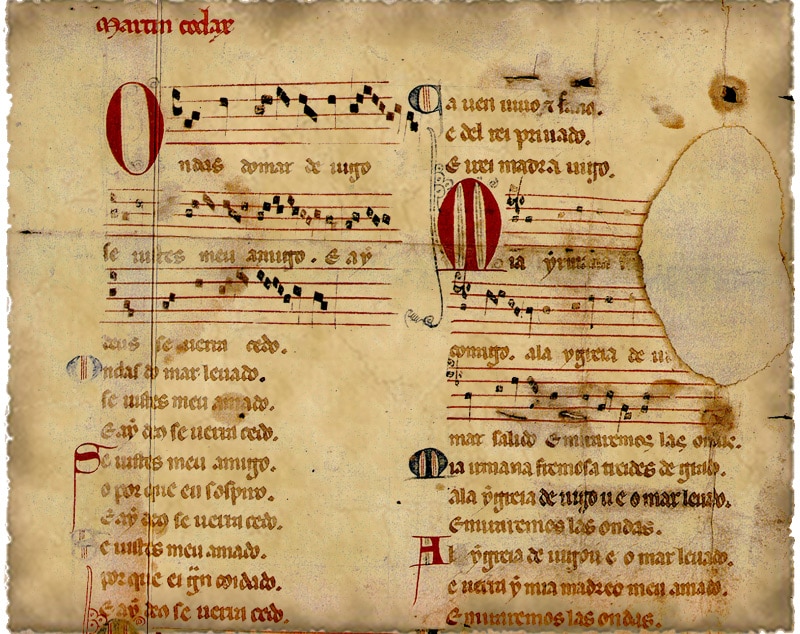 Martin codax
Ondas do mar de uigo
se uistes meu amigo. E ay
deus se uerra cedo.
Ondas do mar leuado.
se uistes meu amado.
E ay deo se uerra cedo.
Se uistes meu amigo.
o por que eu sospiro.
E ay deo se uerra cedo.
Se uistes meu amado.
por que ei gran coidado.
E ay deo se uerra cedo.
Ca uen uiuo
e del rei priuado.
E irei madr a uigo.
Mia yrmana
comigo. a la ygreia de
mar salido E miraremos las ondas.
Mia irmana fremosa treides de grado.
A la ygreia de uigo u e o mar leuado.
E miraremos las ondas.
A la ygreia de uigo u e o mar leuado.
e uerra y mia madre o meu amado.
E miraremos las ondas.